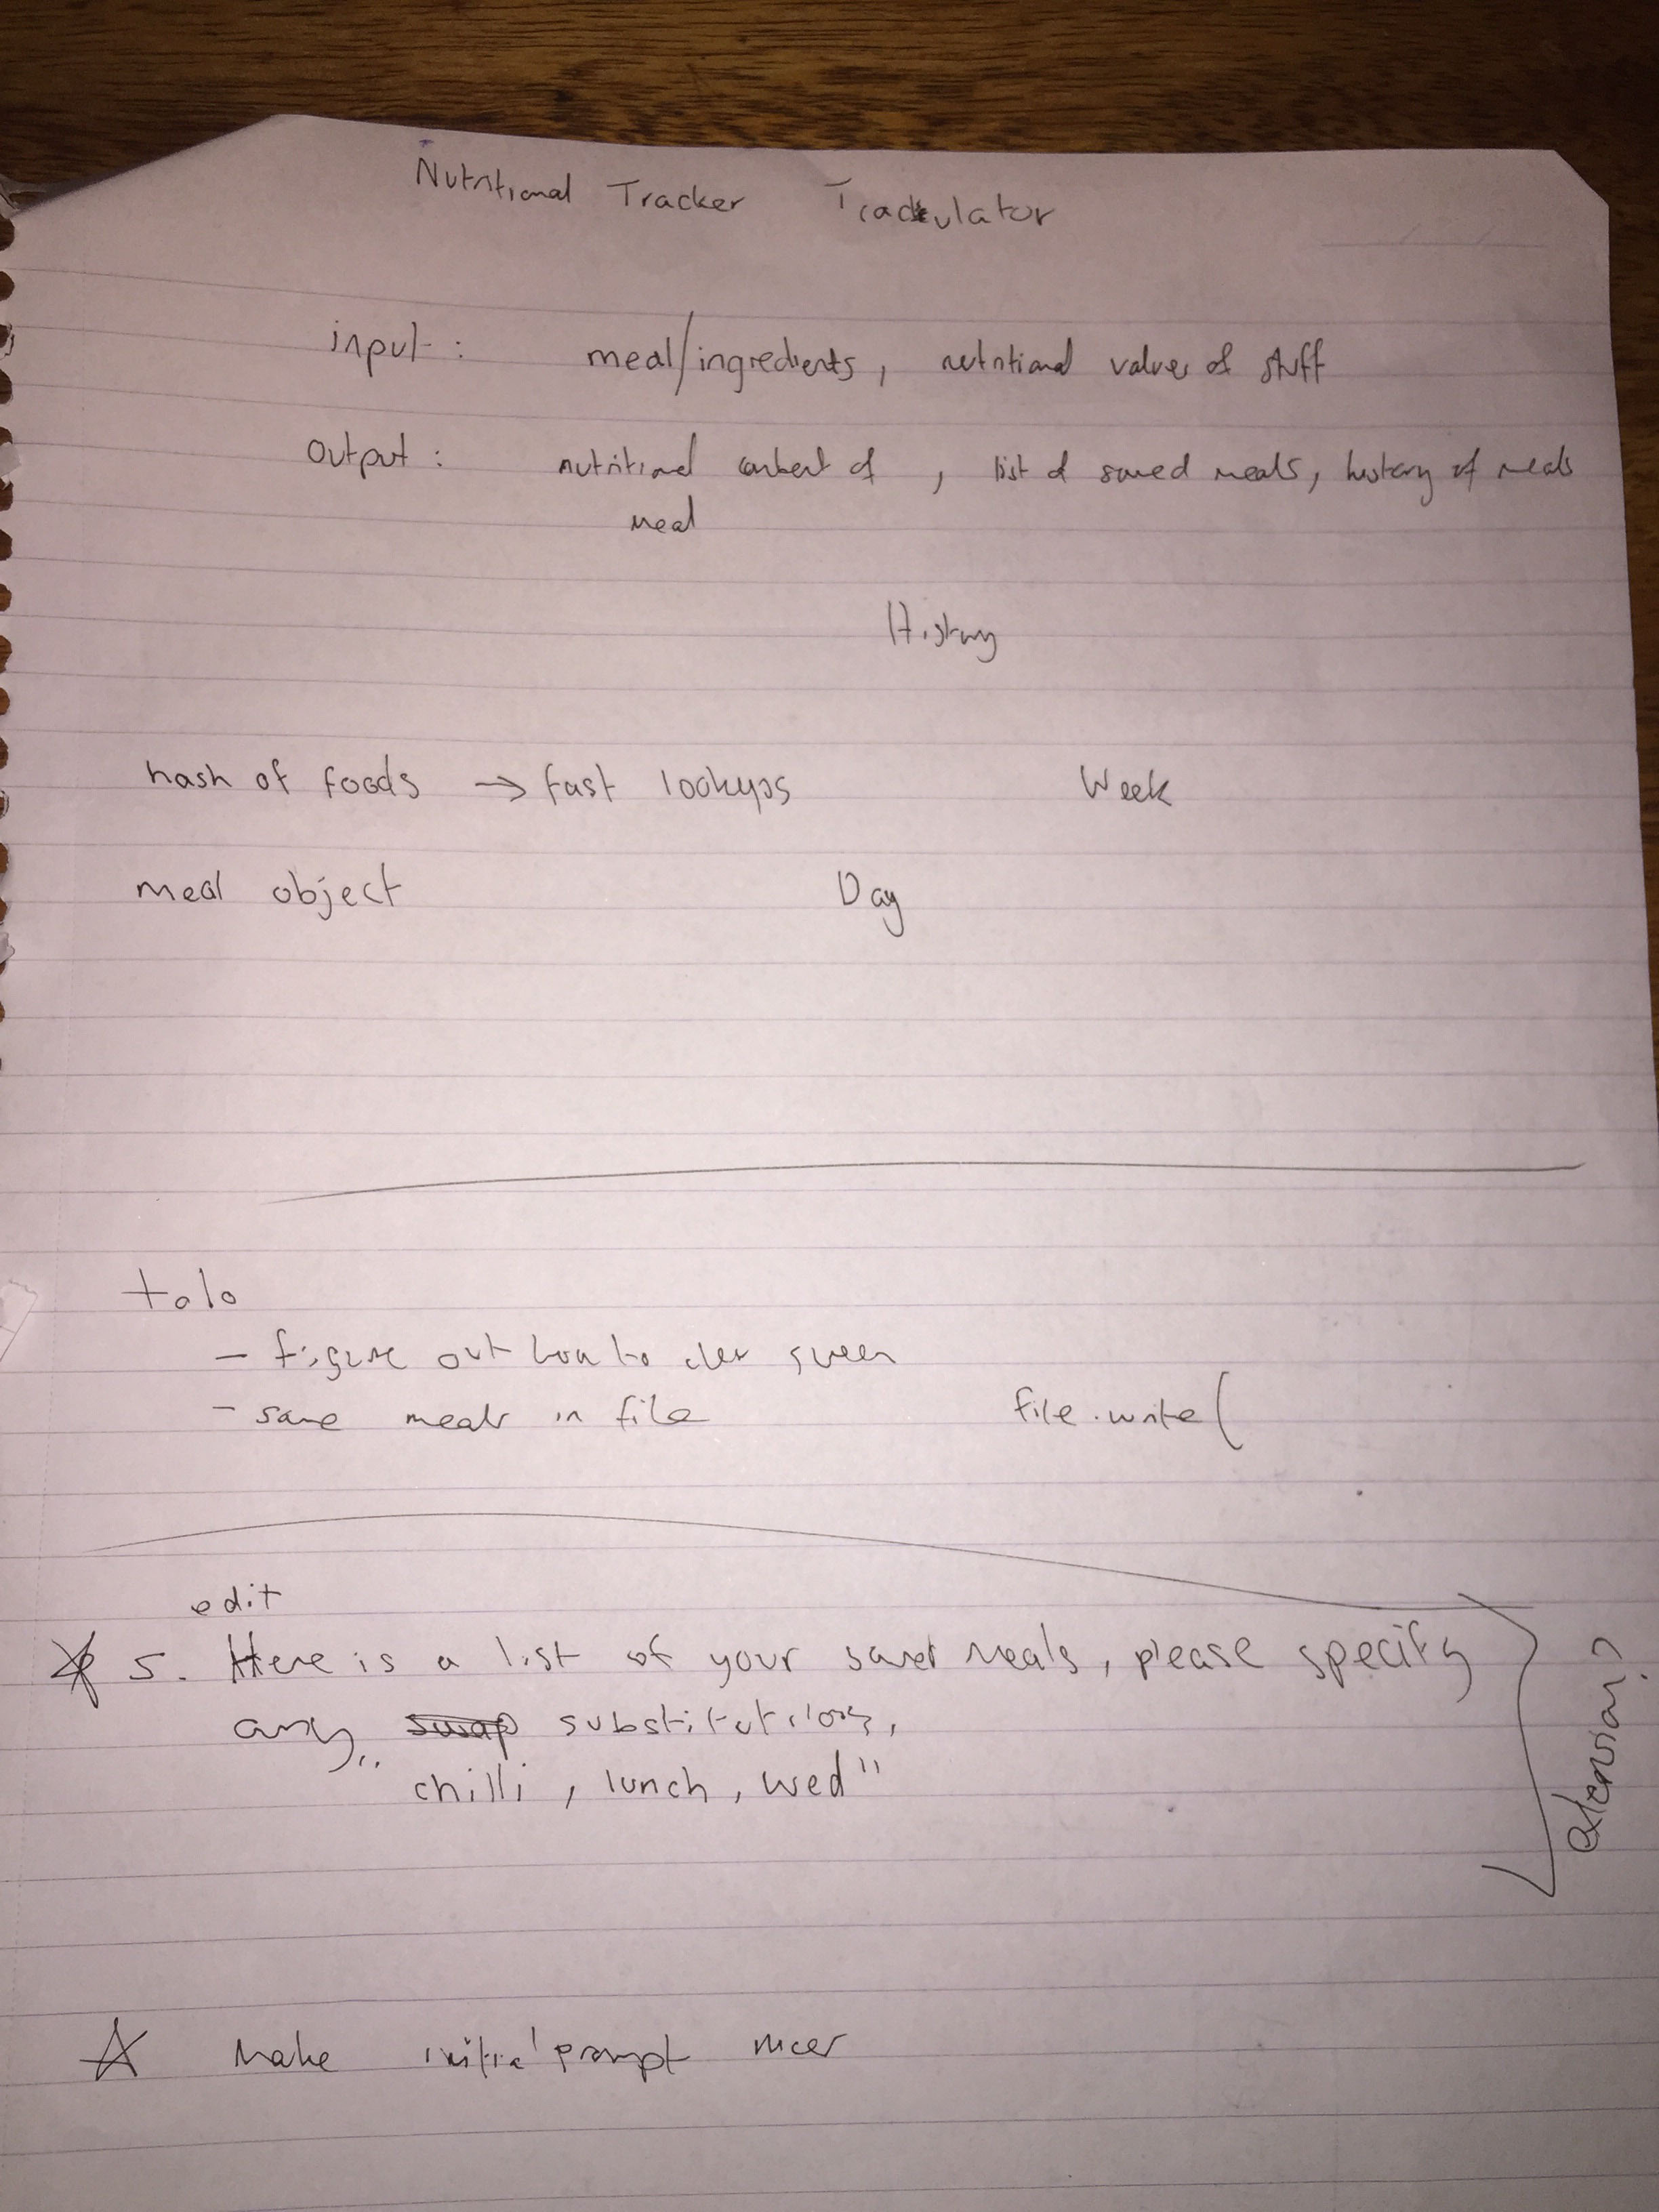 Nutritional Tracker Trackulator
input : meal/ingredients, nutritional values of stuff
Output : nutritional content of , list of saved meals, history of meals
meal
History
hash of foods → fast lookups Week
meal object Day
todo
- figure out how to clear screen
- save meals in file file.write(
edit
5. Here is a list of your saved meals, please specify
any swap substitutions,
"chilli, lunch, wed"
extension?
Make initial prompt nicer